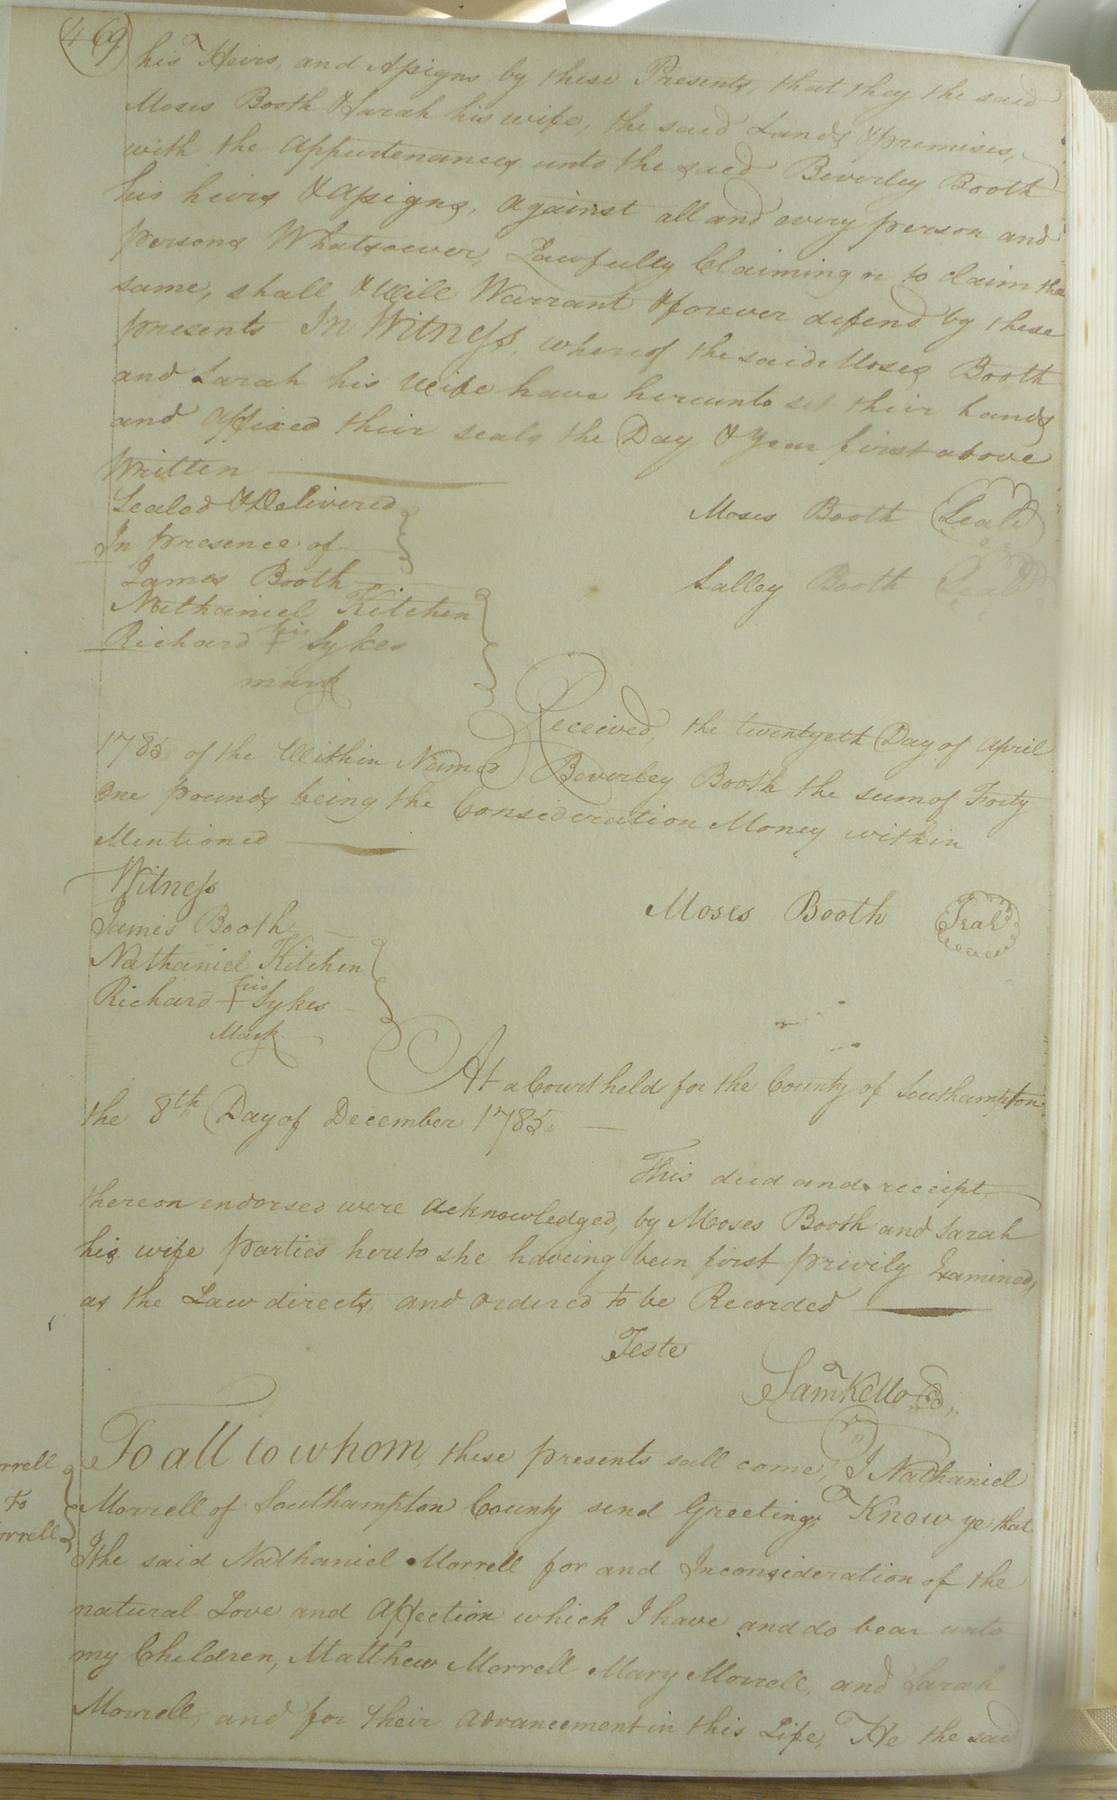 469
his Heirs, and Assigns by these Presents, that they the said
Moses Booth & Sarah his wife, the said Lands & premises,
with the Appurtenances unto the said Beverley Booth
his heirs & Assigns, against all and every person and
persons Whatsoever, Lawfully Claiming or to claim the
same, shall & Will Warrant & forever defend by these
presents In Witness, whereof the said Moses Booth
and Sarah his Wife have hereunto set their hands
and Affixed their seals the Day & Year first above
Written
Sealed & Delivered
In presence of
Moses Booth Seal
James Booth
Salley Booth Seal
Nathaniel Kitchen
Richard + his Sykes
mark
Received, the twentyeth Day of April
1785 of the Within Named Beverley Booth the sum of Forty
One pounds being the Consideration Money within
Mentioned
Witness
Moses Booth Seal
James Booth
Nathaniel Kitchen
Richard + his Sykes
Mark
At a Court held for the County of Southampton
the 8th Day of December 1785
This deed and receipt
thereon endorsed were acknowledged, by Mooses Booth and Sarah
his wife parties hereto she haveing been first privily Examined,
as the Law directs, and ordered to be Recorded
Teste
Saml Kello
To all to whom, these presents sall come, I Nathaniel
rrell
to
orrell
Morrell of Southampton County send Greeting, Know ye that
I the said Nathaniel Morrell for and Inconsideration of the
natural Love and Affection which I have and do bear unto
my Children, Matthew Morrell Mary Morrell, and Sarah
Morrell, and for their advancement in this Life, He the said